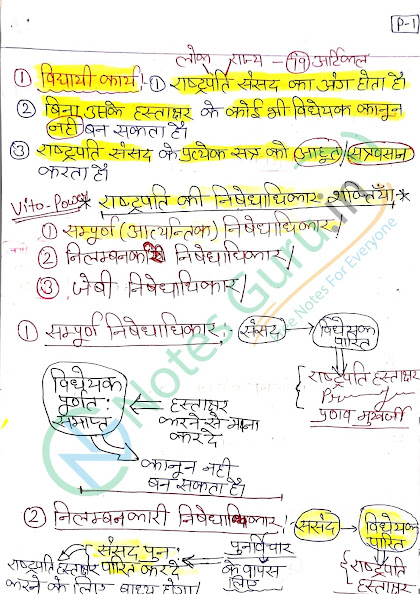 P-1
लोक राज्य - 79 आर्टिकल
① विद्यायी कार्य - ① राष्ट्रपति संसद का अंग होता है।
② बिना उसके हस्ताक्षर के कोई भी विधेयक कानून
नही बन सकता है।
③ राष्ट्रपति संसद के प्रत्येक सत्र को (आहूत) सत्रावसान
करता है।
Vito-Power * राष्ट्रपति की निषेधाधिकार शक्तियाँ *
① सम्पूर्ण (आत्यन्तिक) निषेधाधिकार/
② निलम्बनकारी निषेधाधिकार/
③ जेबी निषेधाधिकार/
Notes Guru.in
The Notes For Everyone
① सम्पूर्ण निषेधाधिकार :- संसद → विधेयक
पारित
विधेयक
पूर्णत:
समाप्त
← हस्ताक्षर
करने से मना
कर दे
{ राष्ट्रपति हस्ताक्षर
प्रणव मुखर्जी
कानून नही
बन सकता है।
② निलम्बनकारी निषेधाधिकार :- संसद → विधेयक
पारित
संसद पुन:
पारित कर दे
पुनर्विचार
के वापस
लिए
{ राष्ट्रपति
हस्ताक्षर
राष्ट्रपति हस्ताक्षर
करने के लिए बाध्य होगा/